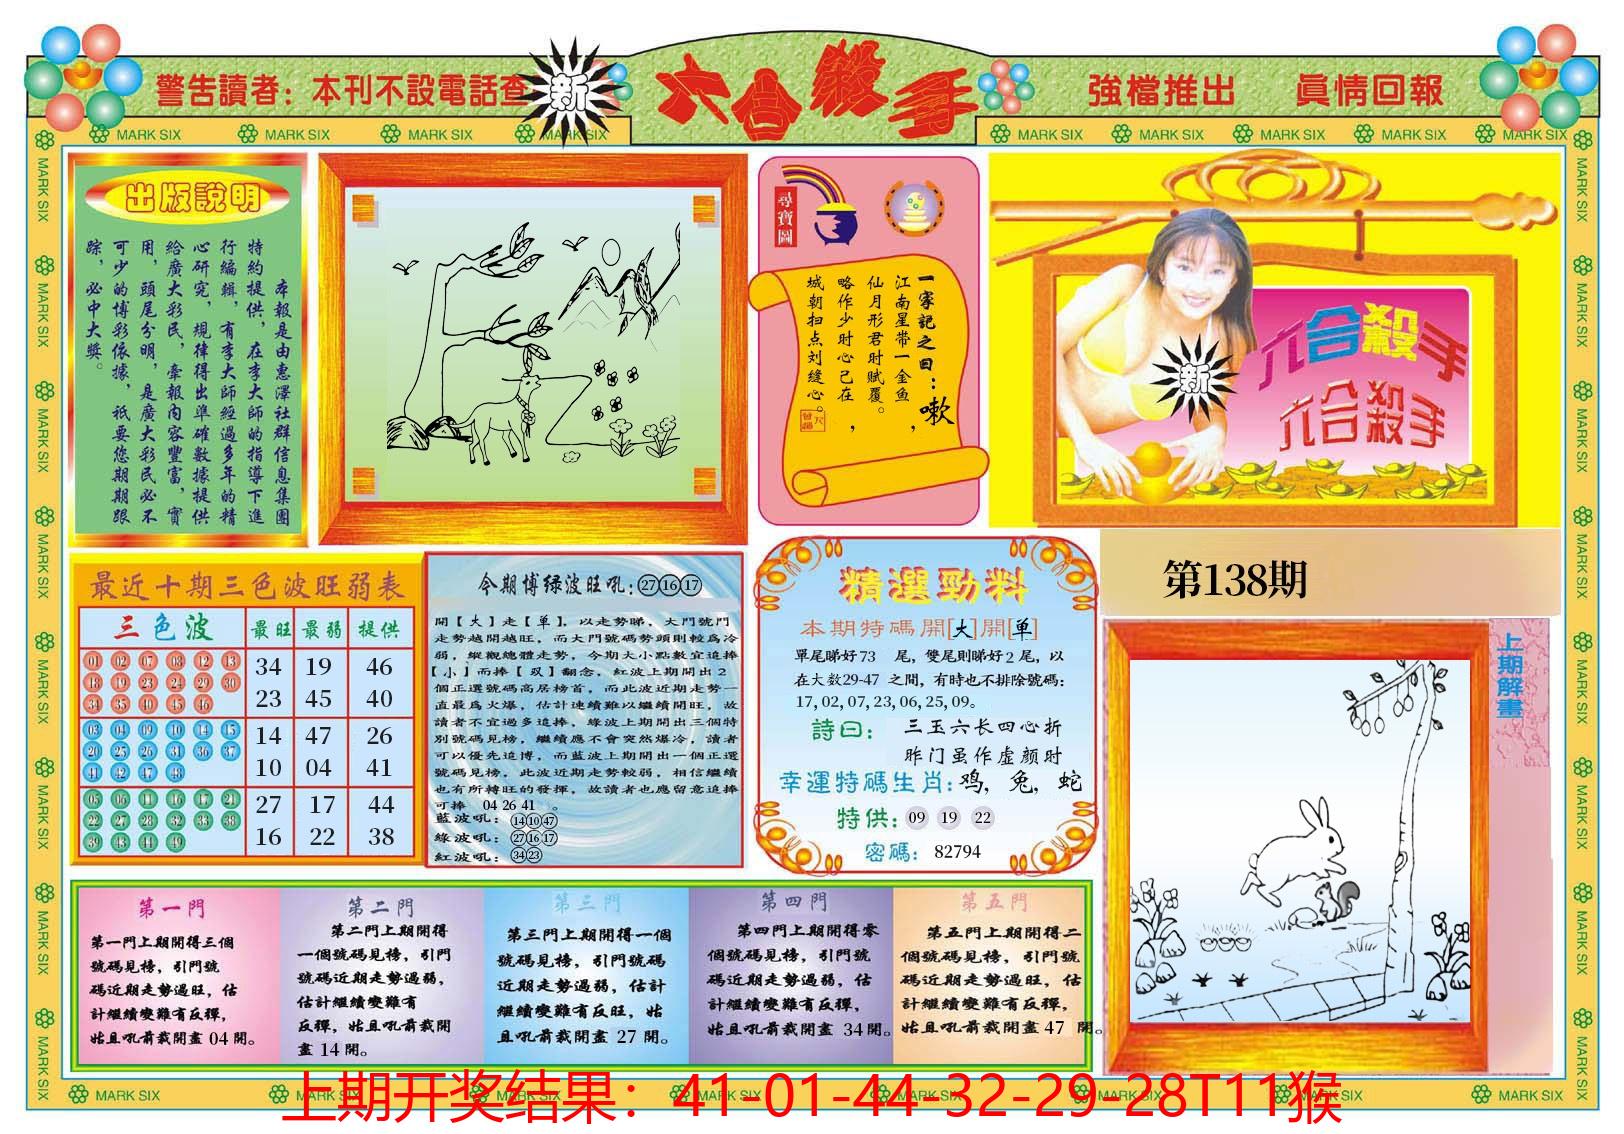 警告讀者：本刊不設電話查
新
六合殺手
強檔推出 真情回報
MARK SIX
出版說明
本報是由惠澤社群信息集團
特約提供，在李大師的指導下進
行編輯，有李大師經過多年的精
心研究，規律得出準確數據提供
給廣大彩民，牽報內容豐富，實
用，頭尾分明，是廣大彩民必不
可少的博彩依據，祇要您期期跟
踪，必中大獎。
尋寶圖
一家記之曰：嗽
江南星帯一金鱼，
仙月形君时赋覆。
略作少时心己在，
城朝扫点刘缝心。
六合殺手
新
六合殺手
第138期
最近十期三色波旺弱表
三色波 最旺 最弱 提供
01 02 07 08 12 13
18 19 23 24 29 30
34 35 40 45 46
34 19 46
23 45 40
03 04 09 10 14 15
20 25 26 31 36 37
41 42 47 48
14 47 26
10 04 41
05 06 11 16 17 21
22 27 28 32 33 38
39 43 44 49
27 17 44
16 22 38
今期博绿波旺吼：27 16 17
開【大】走【单】，以走勢睇，大門號門
走勢越開越旺，而大門號碼勢頭則較為冷
弱，縱觀總體走勢，今期大小點數宜追捧
【小】而捧【双】翻念，紅波上期開出2
個正選號碼高居榜首，而此波近期走勢一
直最為火爆，估計連續難以繼續開旺，故
讀者不宜過多追捧，綠波上期開出三個特
別號碼見榜，繼續應不會突然爆冷，讀者
可以優先追博，而藍波上期開出一個正選
號碼見榜，此波近期走勢較弱，相信繼續
也有所轉旺的發揮，故讀者也應留意追捧
可捧 04 26 41 。
藍波吼：14 10 47
綠波吼：27 16 17
紅波吼：34 23
精選勁料
本期特碼開[大]開[单]
單尾睇好73 尾，雙尾則睇好2尾，以
在大数29-47 之間，有時也不排除號碼：
17, 02, 07, 23, 06, 25, 09。
詩曰： 三玉六长四心折
昨门虽作虚颜时
幸運特碼生肖：鸡，兔，蛇
特供：09 19 22
密碼：82794
上期解畫
第一門
第一門上期開得三個
號碼見榜，引門號
碼近期走勢過旺，估
計繼續變難有反彈，
姑且吼前裁開盡 04 開。
第二門
第二門上期開得
一個號碼見榜，引門
號碼近期走勢過弱，
估計繼續變難有
反彈，姑且吼前裁開
盡 14 開。
第三門
第三門上期開得一個
號碼見榜，引門號碼
近期走勢過弱，估計
繼續變難有反旺，姑
且吼前裁開盡 27 開。
第四門
第四門上期開得零
個號碼見榜，引門號
碼近期走勢過弱，估
計繼續變難有反彈，
姑且吼前裁開盡 34 開。
第五門
第五門上期開得二
個號碼見榜，引門號
碼近期走勢過旺，估
計繼續變難有反彈，
姑且吼前裁開盡 47 開。
上期开奖结果：41-01-44-32-29-28T11猴